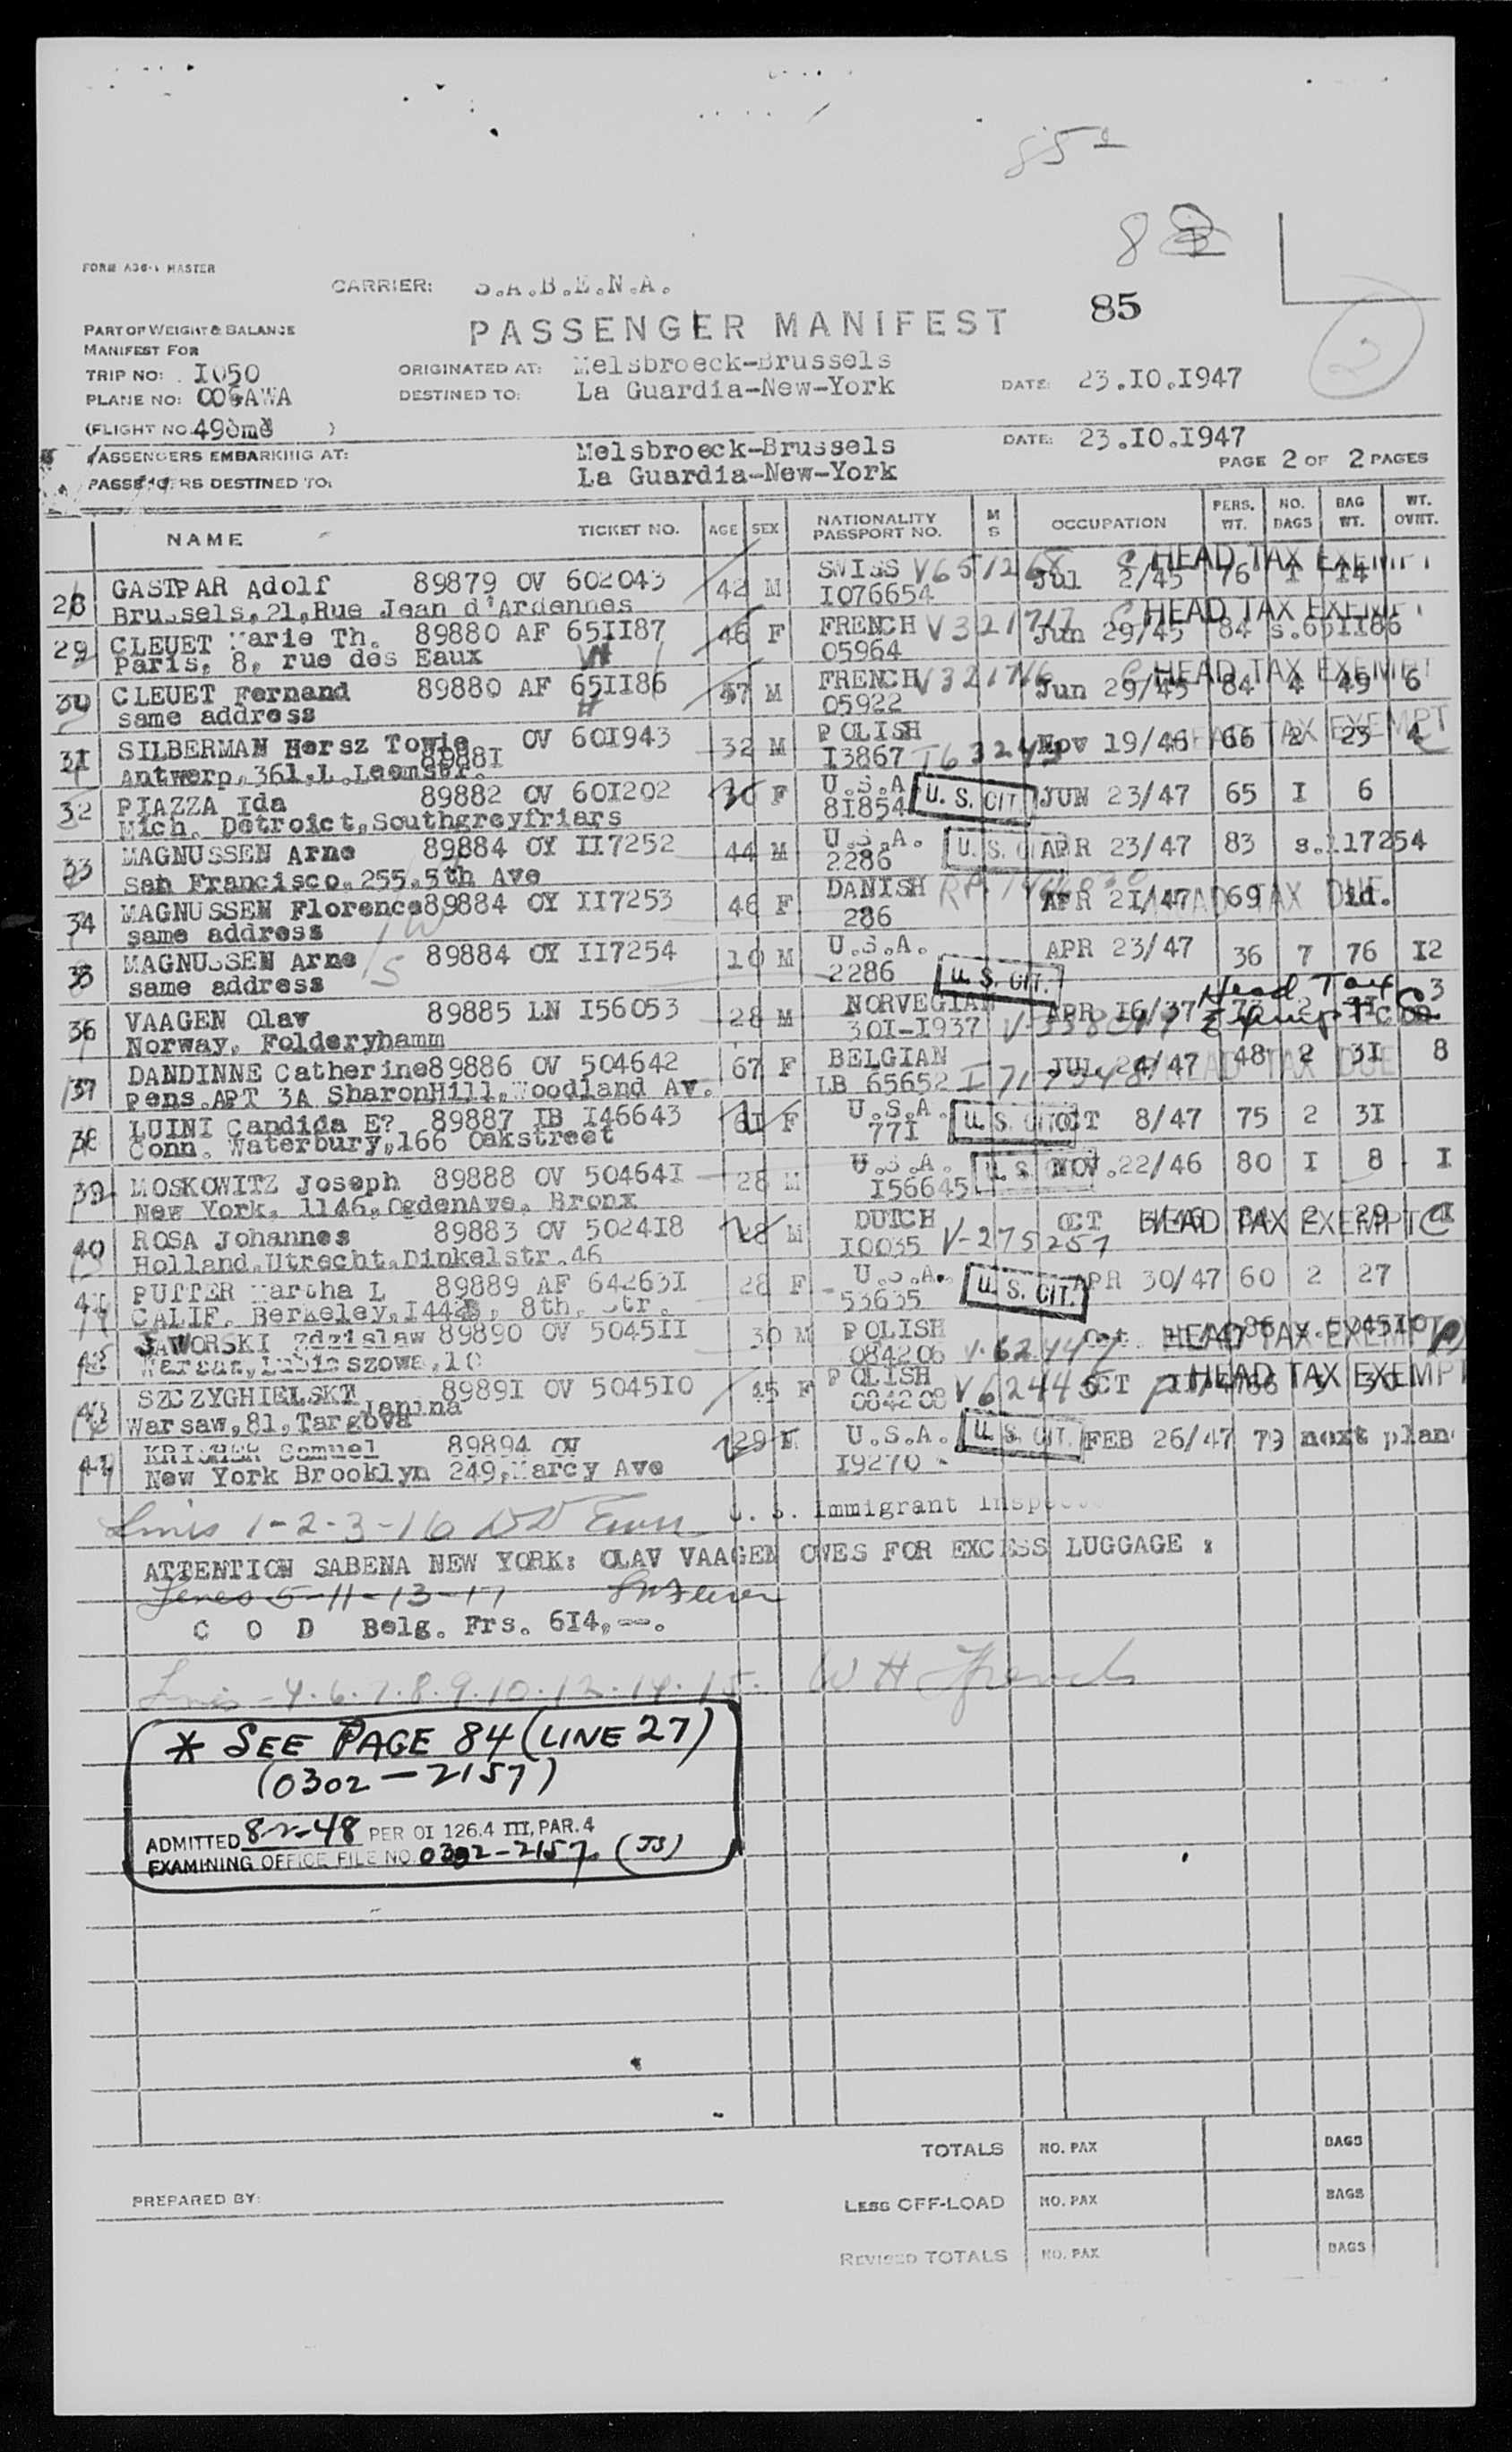 85
8
85
FORM A36-1 MASTER
CARRIER: S.A.B.E.N.A.
PASSENGER MANIFEST
2
PART OF WEIGHT & BALANCE
MANIFEST FOR
TRIP NO: I050
PLANE NO: AWA
(FLIGHT NO. )
ORIGINATED AT: Melsbroeck-Brussels
DESTINED TO: La Guardia-New-York
DATE: 23.IO.I947
PASSENGERS EMBARKING AT: Melsbroeck-Brussels
DATE: 23.IO.I947
PASSENGERS DESTINED TO: La Guardia-New-York
PAGE 2 OF 2 PAGES
NAME TICKET NO. AGE SEX NATIONALITY PASSPORT NO. M S OCCUPATION PERS. WT. NO. BAGS BAG WT. WT. OVRT.
28 GASTPAR Adolf 89879 OV 602043 42 M SWISS V651268 Jul 2/45 76 I I4 HEAD TAX EXEMPT
Brussels,21,Rue Jean d'Ardennes I076654
29 CLEUET Marie Th. 89880 AF 65II87 46 F FRENCH V321717 Jun 29/45 84 s.65II86 HEAD TAX EXEMPT
Paris, 8, rue des Eaux 05964
30 CLEUET Fernand 89880 AF 65II86 57 M FRENCH V321716 Jun 29/45 84 4 49 6 HEAD TAX EXEMPT
same address 05922
3I SILBERMAN Hersz Towie 8988I OV 60I943 32 M POLISH Nov 19/46 66 2 23 4 HEAD TAX EXEMPT
Antwerp,361,L.Leemstr. I3867
32 PIAZZA Ida 89882 OV 60I202 30 F U.S.A U.S. CIT. JUN 23/47 65 I 6
Mich. Detroict,Southgreyfriars 8I854
33 MAGNUSSEN Arne 89884 OY II7252 44 M U.S.A. U.S. CIT. APR 23/47 83 s.II7254
San Francisco,255,5th Ave 2286
34 MAGNUSSEN Florence 89884 OY II7253 46 F DANISH APR 2I/47 69 id. HEAD TAX DUE
same address 286
35 MAGNUSSEN Arne 89884 OY II7254 10 M U.S.A. APR 23/47 36 7 76 I2
same address 2286 U.S. CIT.
36 VAAGEN Olav 89885 LN I56053 28 M NORVEGIAN APR I6/37 77 2 3 Head Tax Exempt
Norway, Folderyhamm 30I-I937
37 DANDINNE Catherine 89886 OV 504642 67 F BELGIAN JUL 24/47 48 2 3I 8 HEAD TAX DUE
pens.APT 3A SharonHill,Woodland Av. LB 65652
38 LUINI Candida E? 89887 IB I46643 61 F U.S.A. U.S. CIT. OCT 8/47 75 2 3I
Conn. Waterbury,166 Oakstreet 77I
39 MOSKOWITZ Joseph 89888 OV 50464I 28 M U.S.A. U.S. NOV.22/46 80 I 8 I
New York, 1146,OgdenAve, Bronx I56645
40 ROSA Johannes 89883 OV 5024I8 28 M DUTCH OCT 2 29 HEAD TAX EXEMPT
Holland,Utrecht,Dinkelstr.46 I0035 V-275257
41 PUTTER Martha L 89889 AF 64263I 28 F U.S.A. U.S. CIT. APR 30/47 60 2 27
CALIF. Berkeley, 8th, Str. 53635
42 JAWORSKI Zdzislaw 89890 OV 5045II 30 M POLISH Oct. 86 HEAD TAX EXEMPT
084206
43 SZCZYGHIELSKI Janina 8989I OV 5045I0 45 F POLISH V62445 OCT HEAD TAX EXEMPT
Warsaw,81,Targova 084208
44 Samuel 89894 OV 29 M U.S.A. U.S. CIT. FEB 26/47 79 next plane
New York Brooklyn 249,Marcy Ave I9270
Lines 1-2-3-16
U. S. Immigrant Inspector
ATTENTION SABENA NEW YORK: OLAV VAAGEN OWES FOR EXCESS LUGGAGE :
Lines 5-11-13-17
C O D Belg. Frs. 6I4,--.
Lines -4.6.7.8.9.10.12.14.15. W H French
* SEE PAGE 84 (LINE 27)
(0302-2157)
ADMITTED PER OI 126.4 III, PAR. 4
EXAMINING OFFICE FILE NO. 0302-2157 (JS)
TOTALS NO. PAX BAGS
PREPARED BY:
LESS OFF-LOAD NO. PAX BAGS
REVISED TOTALS NO. PAX BAGS